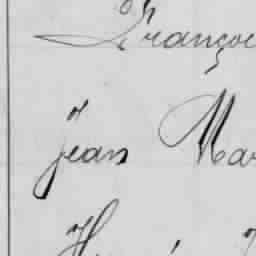 Françoi
Jean Mar